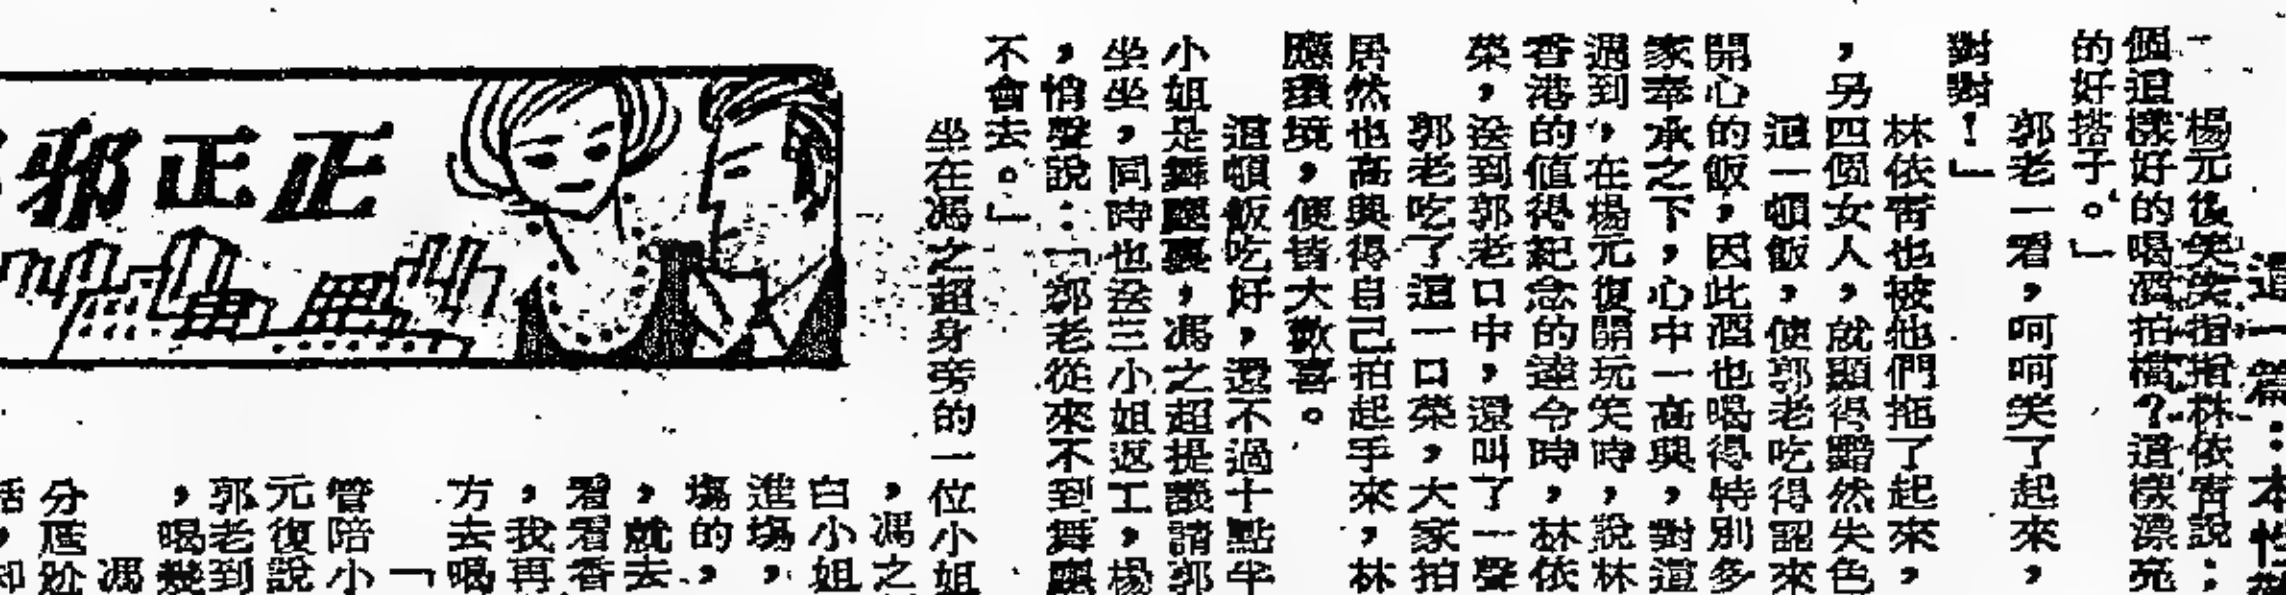 這一篇：本性
楊元復笑笑指指林依宵說：
個這樣好的喝酒拍檔？這樣漂亮
的好搭子。」
郭老一看，呵呵笑了起來，
對對！」
林依宵也被他們拖了起來，
，另四個女人，就顯得黯然失色
這一頓飯，使郭老吃得認來
開心的飯，因此酒也喝得特別多
家奉承之下，心中一高興，對這
遇到，在楊元復開玩笑時，說林
香港的值得紀念的達令時，林依
菜，送到郭老口中，還叫了一聲
郭老吃了這一口菜，大家拍
居然也高興得自己拍起手來，林
應環境，便皆大歡喜。
這頓飯吃好，還不過十點半
小姐是舞廳裏，馮之超提議請郭
坐坐，同時也送三小姐返工，楊
，悄聲說：「郭老從來不到舞廳
不會去。」
坐在馮之超身旁的一位小姐
正正邪
，馮之
白小姐
進場，
場的，
，就去
看看香
，我再
方去喝
「
管陪小
元復說
郭老到
，喝幾
馮
分尷尬